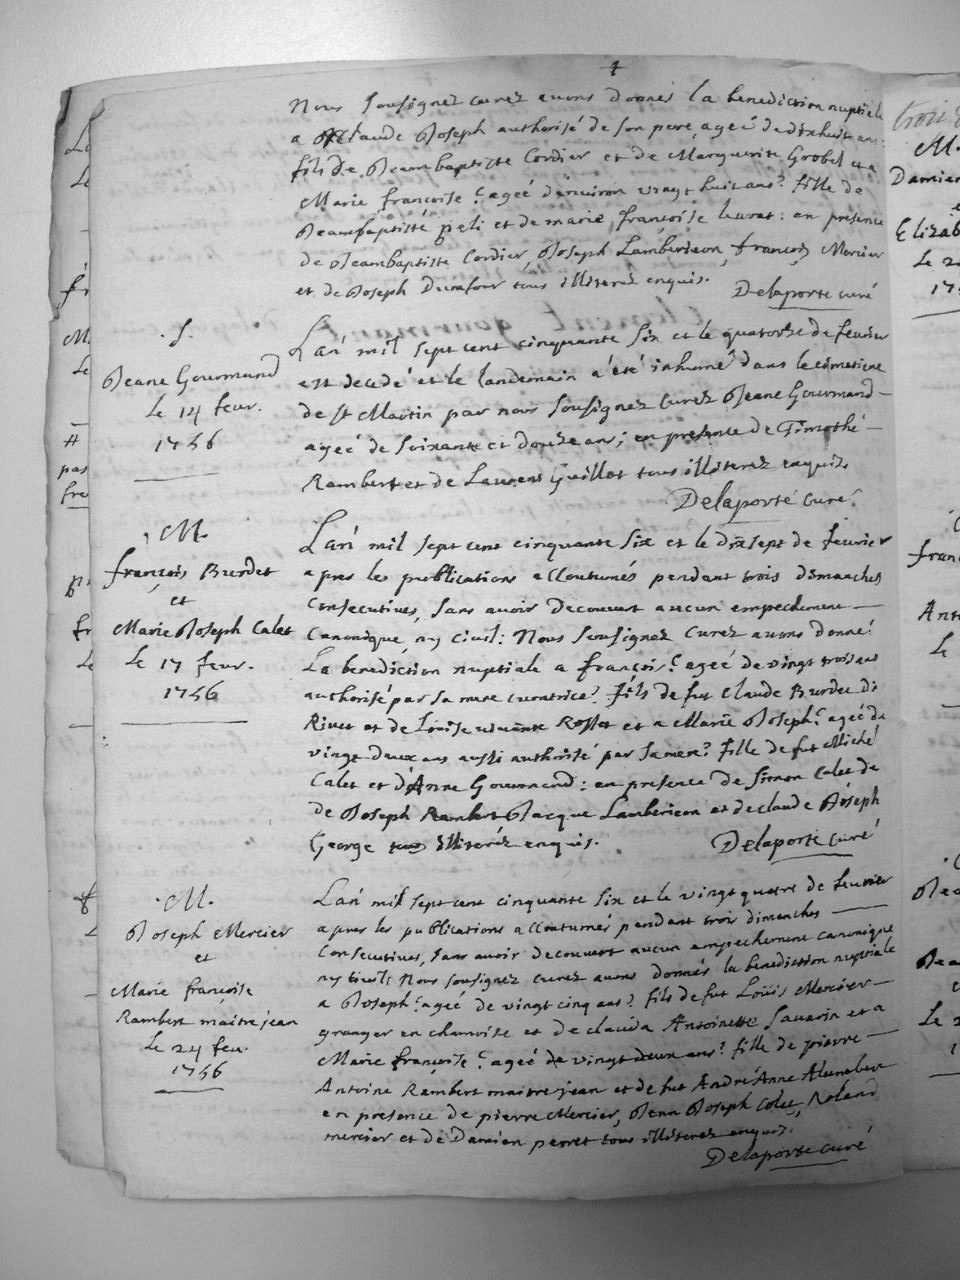 4
Nous soussignez curez avons donnéz la benediction nuptiale
a Claude Joseph authorisé de son pere agee de dixhuit ans
fils de Jeanbaptiste Cordier et de Marguerite Grobel et a
Marie françoise: ageé d'environ vingt huit ans: fille de
Jeanbaptiste et de marie françoise leurat: en présence
de Jeanbaptiste Cordier, Joseph Lambersson, françois Mercier
et de Joseph Durafour tous illiterez enquis.
Delaporte curé
.S.
Jeane Gourmand
Le 14 feur.
1756
L'an mil sept cent cinquante six et le quatorze de feurier
est decedé et le landemain a été inhumé dans le cimetiere
de st Martin par nous soussignez curez Jeane Gourmand
ageé de soixante et douze ans; en presence de Timothé
Rambert et de Laurens Guillot tous illiterez enquis.
Delaporte curé.
M.
françois Burdet
et
Marie Joseph Calet
Le 17 feur.
1756
L'an mil sept cent cinquante six et le dix sept de feurier
apres les publications accoutumés pendant trois dimanches
consecutives, sans avoir decouvert aucun empechement
Canonique ny ciuil: Nous soussignez curez auons donné
La benediction nuptiale a françois: ageé de vingt trois ans
authorisé par sa mere curatrice: fils de fut Claude Burdet du
Riuet et de Louise viuante Rosset et a Marie Joseph: ageé de
vingt deux ans aussi authorisé par sa mere: fille de fut Miché
Calet et d'Anne Gourmand: en presence de Simon Calet de
de Joseph Rambert Jacque Lambersson et de claude Joseph
George tous illiteréz enquis.
Delaporte curé
M.
Joseph Mercier
et
Marie françoise
Rambert maitrejean
Le 24 feu.
1756
L'an mil sept cent cinquante six et le vingt quatre de feurier
apres les publications accoutumés pendant trois dimanches
Consecutiues, sans auoir decouuert aucun empechement canonique
ny ciuil: Nous soussignez curez auons donnés la benediction nuptiale
a Joseph: ageé de vingt cinq ans: fils de fut Loüis Mercier
granger en chamoise et de clauda Antoinette Sauarin et a
Marie françoise: ageé de vingt deux ans: fille de pierre
Antoine Rambert maitrejean et de fut André Anne
en presence de pierre Mercier, Jean Joseph Calet, Roland
mercier et de Damien perret tous illiterez enquis.
Delaporte curé